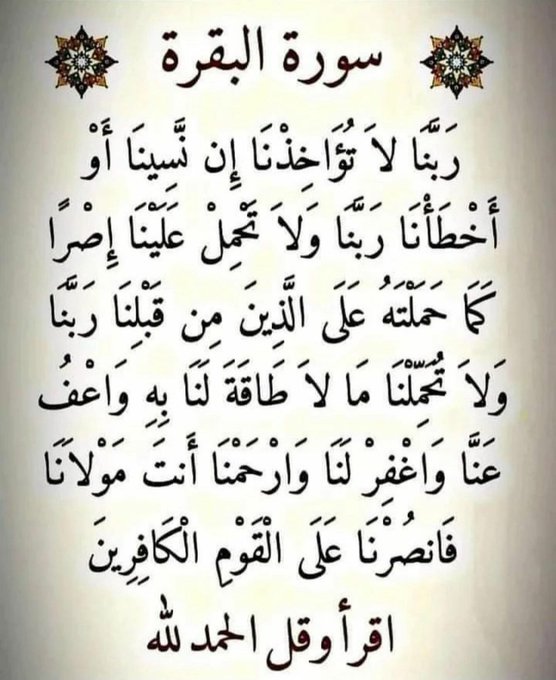 سورة البقرة
رَبَّنَا لاَ تُؤَاخِذْنَا إِن نَّسِينَا أَوْ
أَخْطَأْنَا رَبَّنَا وَلاَ تَحْمِلْ عَلَيْنَا إِصْرًا
كَمَا حَمَلْتَهُ عَلَى الَّذِينَ مِن قَبْلِنَا رَبَّنَا
وَلاَ تُحَمِّلْنَا مَا لاَ طَاقَةَ لَنَا بِهِ وَاعْفُ
عَنَّا وَاغْفِرْ لَنَا وَارْحَمْنَا أَنتَ مَوْلاَنَا
فَانصُرْنَا عَلَى الْقَوْمِ الْكَافِرِينَ
اقرأ وقل الحمد لله